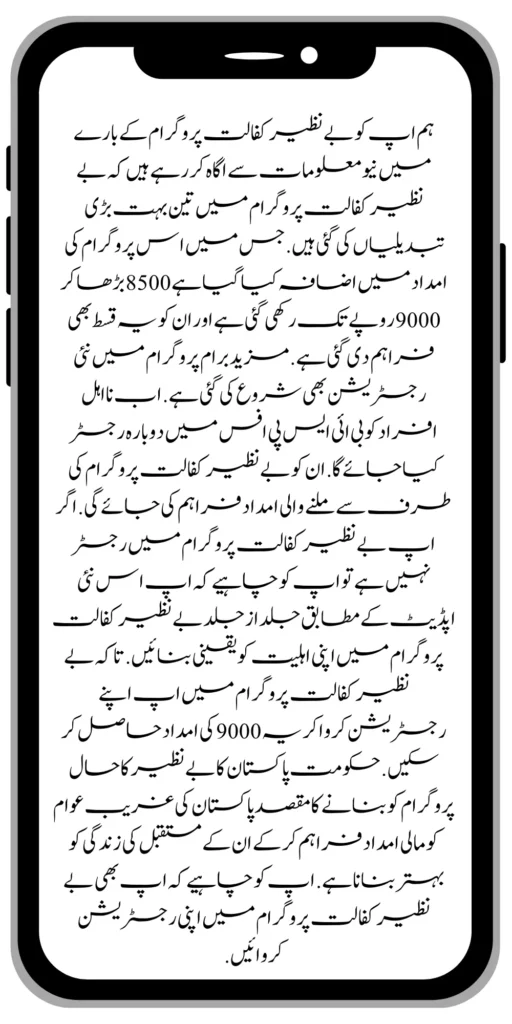 ہم اپ کو بے نظیر کفالت پروگرام کے بارے
میں نیو معلومات سے اگاہ کر رہے ہیں کہ بے
نظیر کفالت پروگرام میں تین بہت بڑی
تبدیلیاں کی گئی ہیں. جس میں اس پروگرام کی
امداد میں اضافہ کیا گیا ہے 8500 بڑھا کر
9000 روپے تک رکھی گئی ہے اور ان کو یہ قسط بھی
فراہم دی گئی ہے. مزید برام پروگرام میں نئی
رجسٹریشن بھی شروع کی گئی ہے. اب نااہل
افراد کو بی ائی ایس پی افس میں دوبارہ رجسٹر
کیا جائے گا. ان کو بے نظیر کفالت پروگرام کی
طرف سے ملنے والی امداد فراہم کی جائے گی. اگر
اپ بے نظیر کفالت پروگرام میں رجسٹر
نہیں ہے تو اپ کو چاہیے کہ اپ اس نئی
اپڈیٹ کے مطابق جلد از جلد بے نظیر کفالت
پروگرام میں اپنی اہلیت کو یقینی بنائیں. تاکہ بے
نظیر کفالت پروگرام میں اپ اپنے
رجسٹریشن کروا کر یہ 9000 کی امداد حاصل کر
سکیں. حکومت پاکستان کا بے نظیر کا حال
پروگرام کو بنانے کا مقصد پاکستان کی غریب عوام
کو مالی امداد فراہم کر کے ان کے مستقبل کی زندگی کو
بہتر بنانا ہے. اپ کو چاہیے کہ اپ بھی بے
نظیر کفالت پروگرام میں اپنی رجسٹریشن
کروائیں.